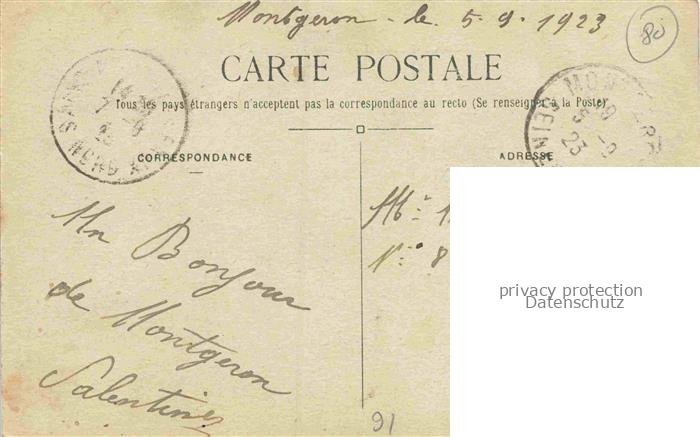 Montgeron - le 5-9-1923
80
CARTE POSTALE
Tous les pays étrangers n'acceptent pas la correspondance au recto (Se renseigner à la Poste)
CORRESPONDANCE
ADRESSE
Un Bonjour
de Montgeron
N° 8
privacy protection
Datenschutz
91